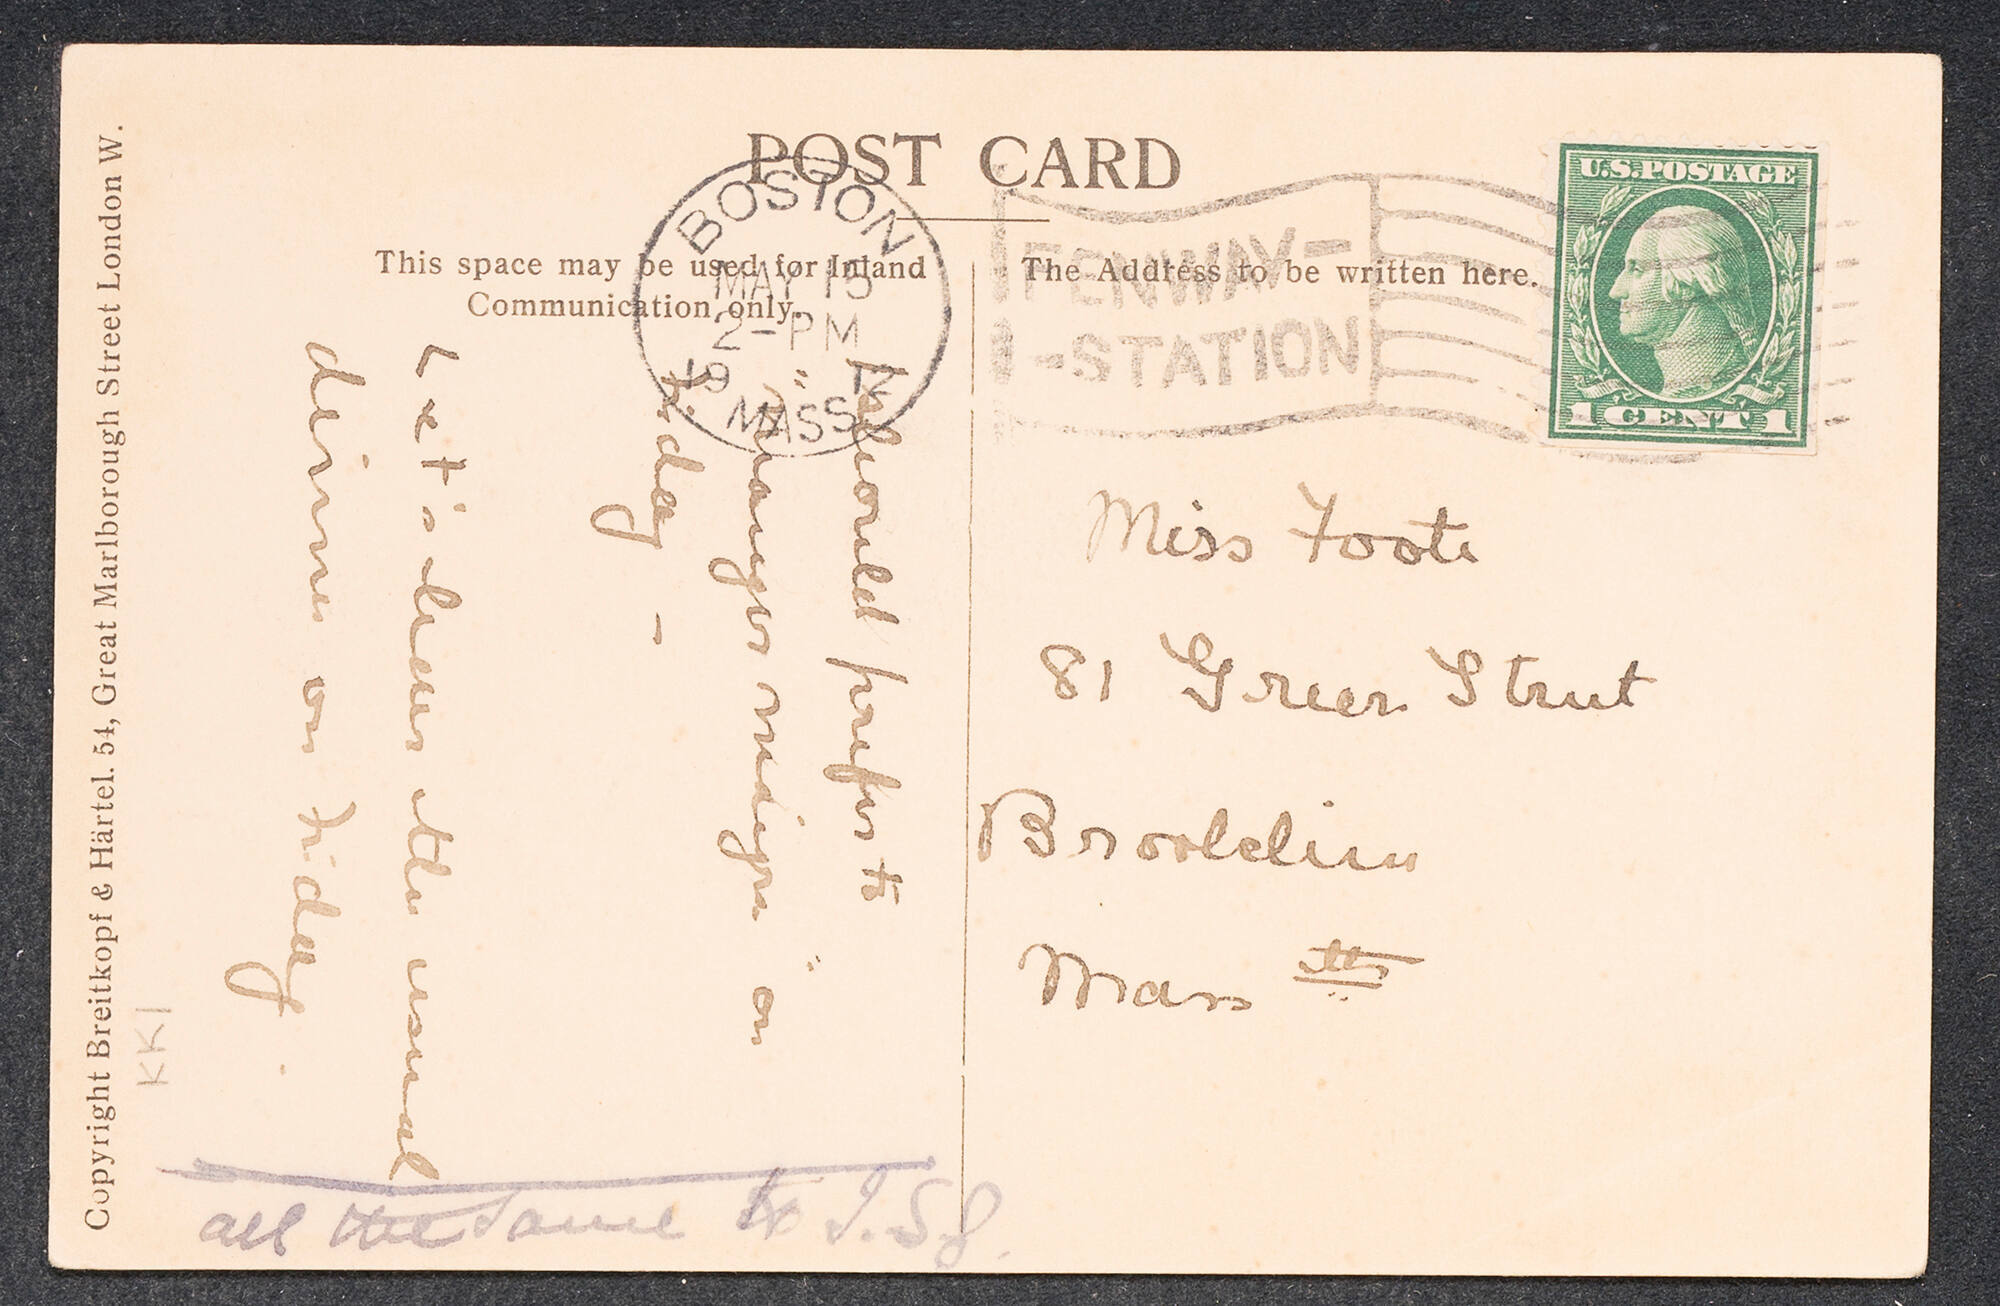 POST CARD
This space may be used for Inland
Communication only.
The Address to be written here.
BOSTON
MAY 15
2-PM
19
MASS.
FENWAY-
-STATION
U.S. POSTAGE
1 CENT 1
I should prefer to
"manger maigre" on
Friday -
Let's have the usual
dinner on Friday.
all the same to I.S.G.
Miss Foote
81 Green Street
Brookline
Mass tts
Copyright Breitkopf & Härtel. 54, Great Marlborough Street London W.
KK1